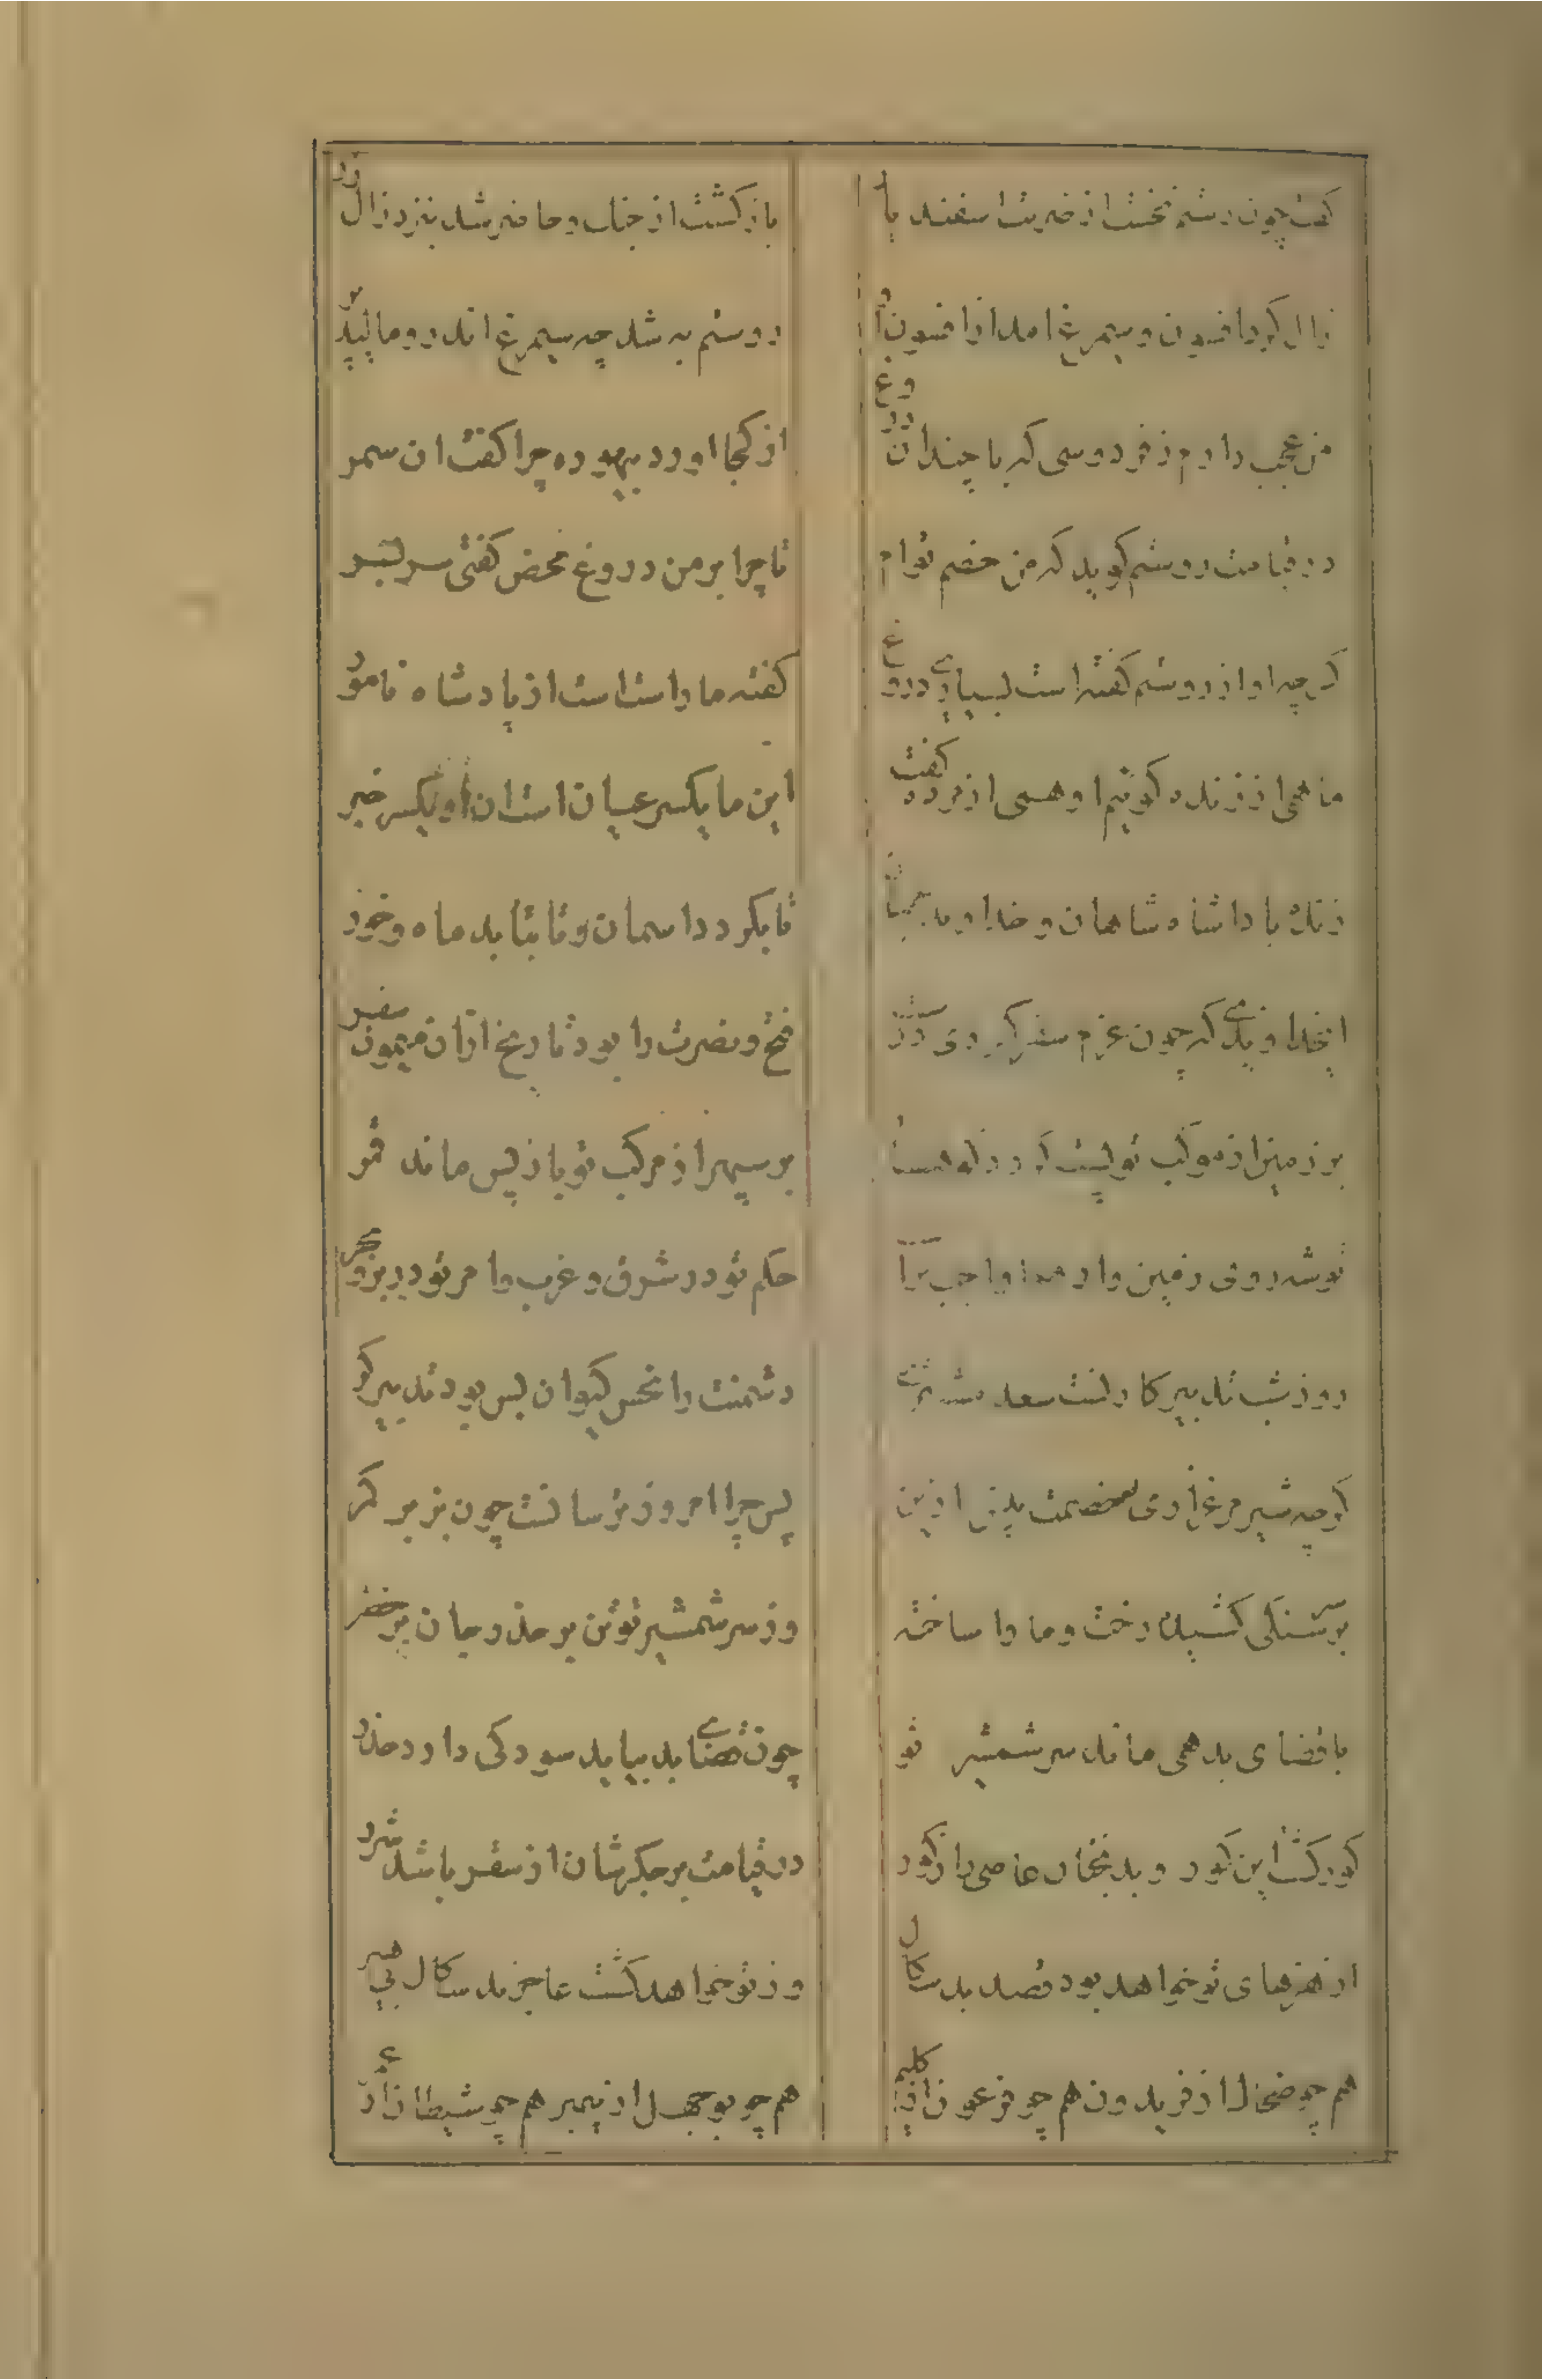 گفت چون رستم بخست از ضربت اسفندیار باز کشت از جنک و حاضر شد بنزد زال زر
زال کرد افسون و سیمرغ امد از افسون او روستم به شد چه سیمرغ اندرو مالید پر
من عجب دارم ز فردوسی که با چندان دروغ از کجا اورد بیهوده چرا کفت ان سمر
در قیامت روستم کوید که من خصم توام تا چرا بر من دروغ محض کفتی سر بسر
کرچه او از روستم کفته است بسیاری دروغ کفته ما راست است از پادشاه نامور
ما همی از زنده کوئیم او همی از مرده کفت این ما یکسر عیان است ان او یکسر خبر
زنده بادا شاه شاهان و خداوند جهان تا بکردد اسمان و تا بتابد ماه و خور
ایخداوندی که چون عزم سفر کردی درست فتح و نصرت را بود تاریخ ازان میمون سفر
بر زمین از موکب تو پشت کاو بر سپهر از مرکب تو باز پس ماند قمر
توشه روی زمین و امر تو واجب حکم تو در شرق و غرب و امر تو در بر و بحر
روز شب تدبیر کار تست سعد مشتری دشمنت را نحس کیوان بس بود تدبیر کر
کرچه شیر مرغزاری خصمت پیش ازین پس چرا امروز ترسانست چون بز بر کمر
بر سر سنکی کشیده رخت و ماوا ساخته وز سر شمشیر تو تن بر حذر جان بر خطر
با قضای بد همی ماند سر شمشیر تو چون قضای بد بیاید سود کی دارد حذر
کور کشت این کور و بدبختان عاصی را ز کور در قیامت بر جکرشان از سقر باشد شرر
از هنرهای تو خواهد بود قصد بد سکال وز تو خواهد کشت عاجز بد سکال بی هنر
هم چو ضحاک از فریدون هم چو فرعون از کلیم هم چو بوجهل از پیمبر هم چو شیطان از عمر